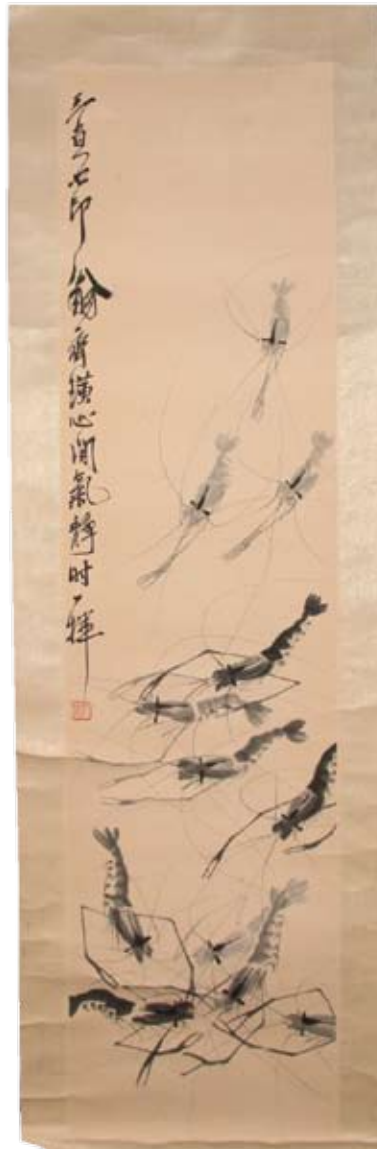 三百石印翁齊璜心閒氣靜时一揮